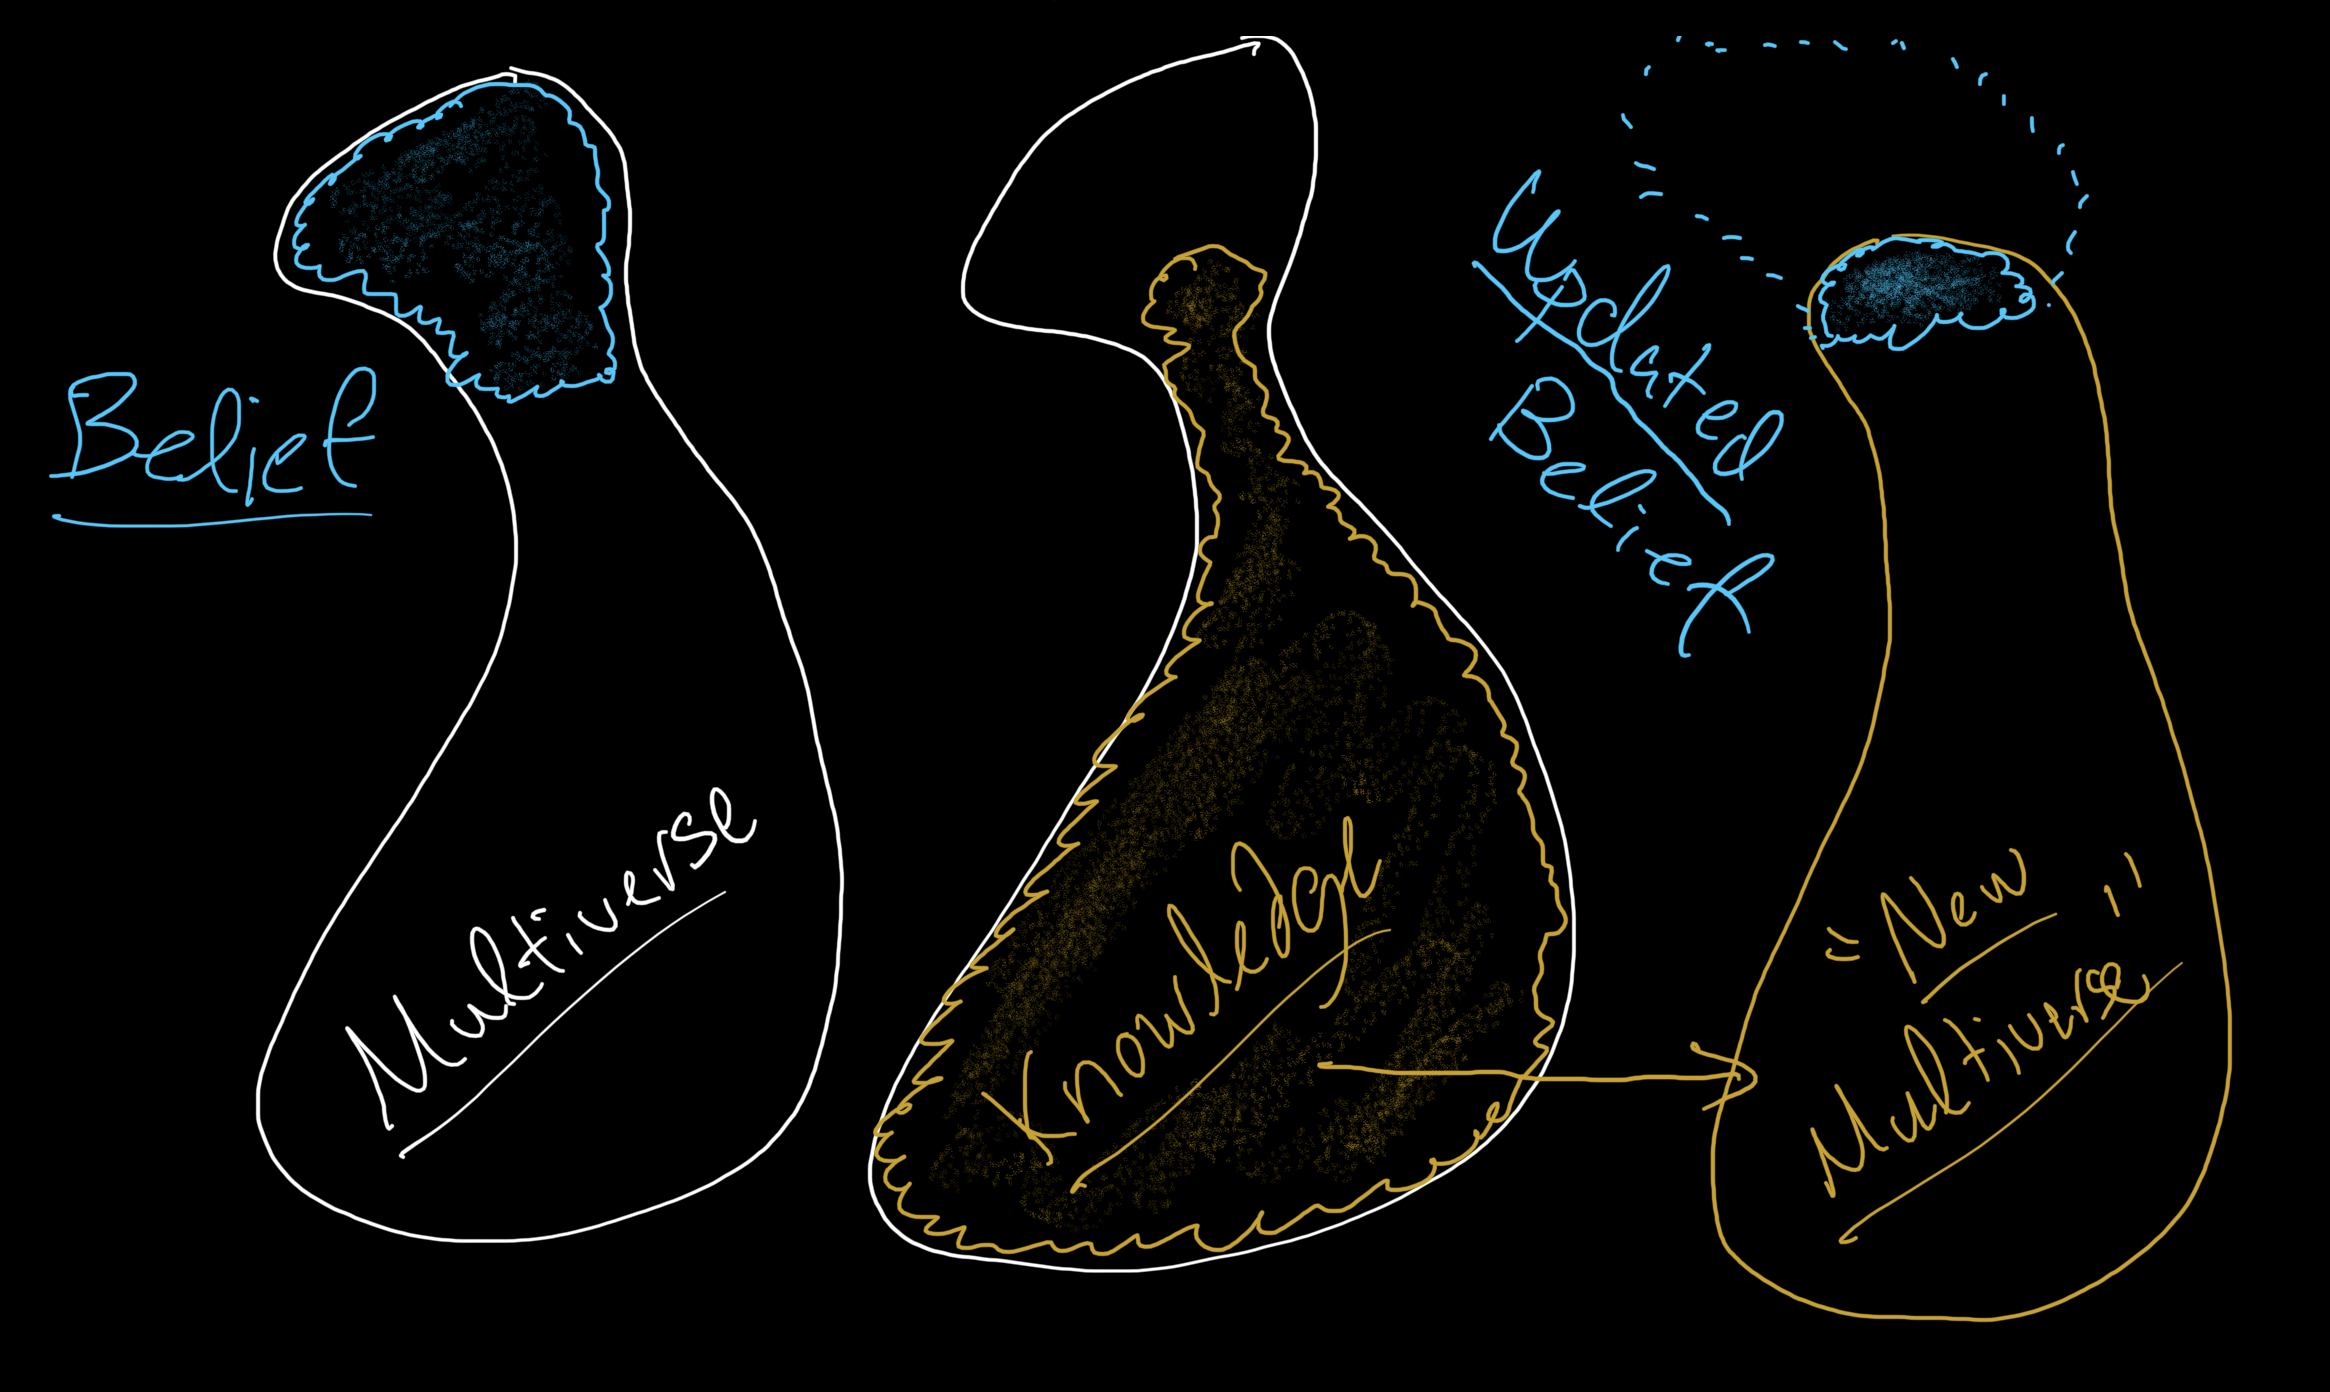 Belief
Multiverse
Knowledge
Updated
Belief
"New"
Multiverse